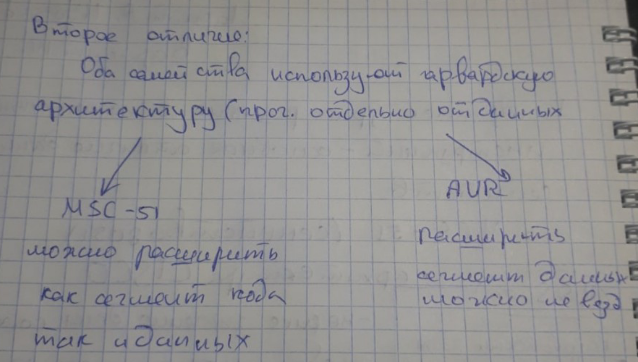 Второе отличие:
Оба семейства используют гарвардскую
архитектуру (прог. отдельно от данных
MSC-51
можно расширить
как сегмент кода
так и данных
AVR
расширить
сегмент данных
можно не везд